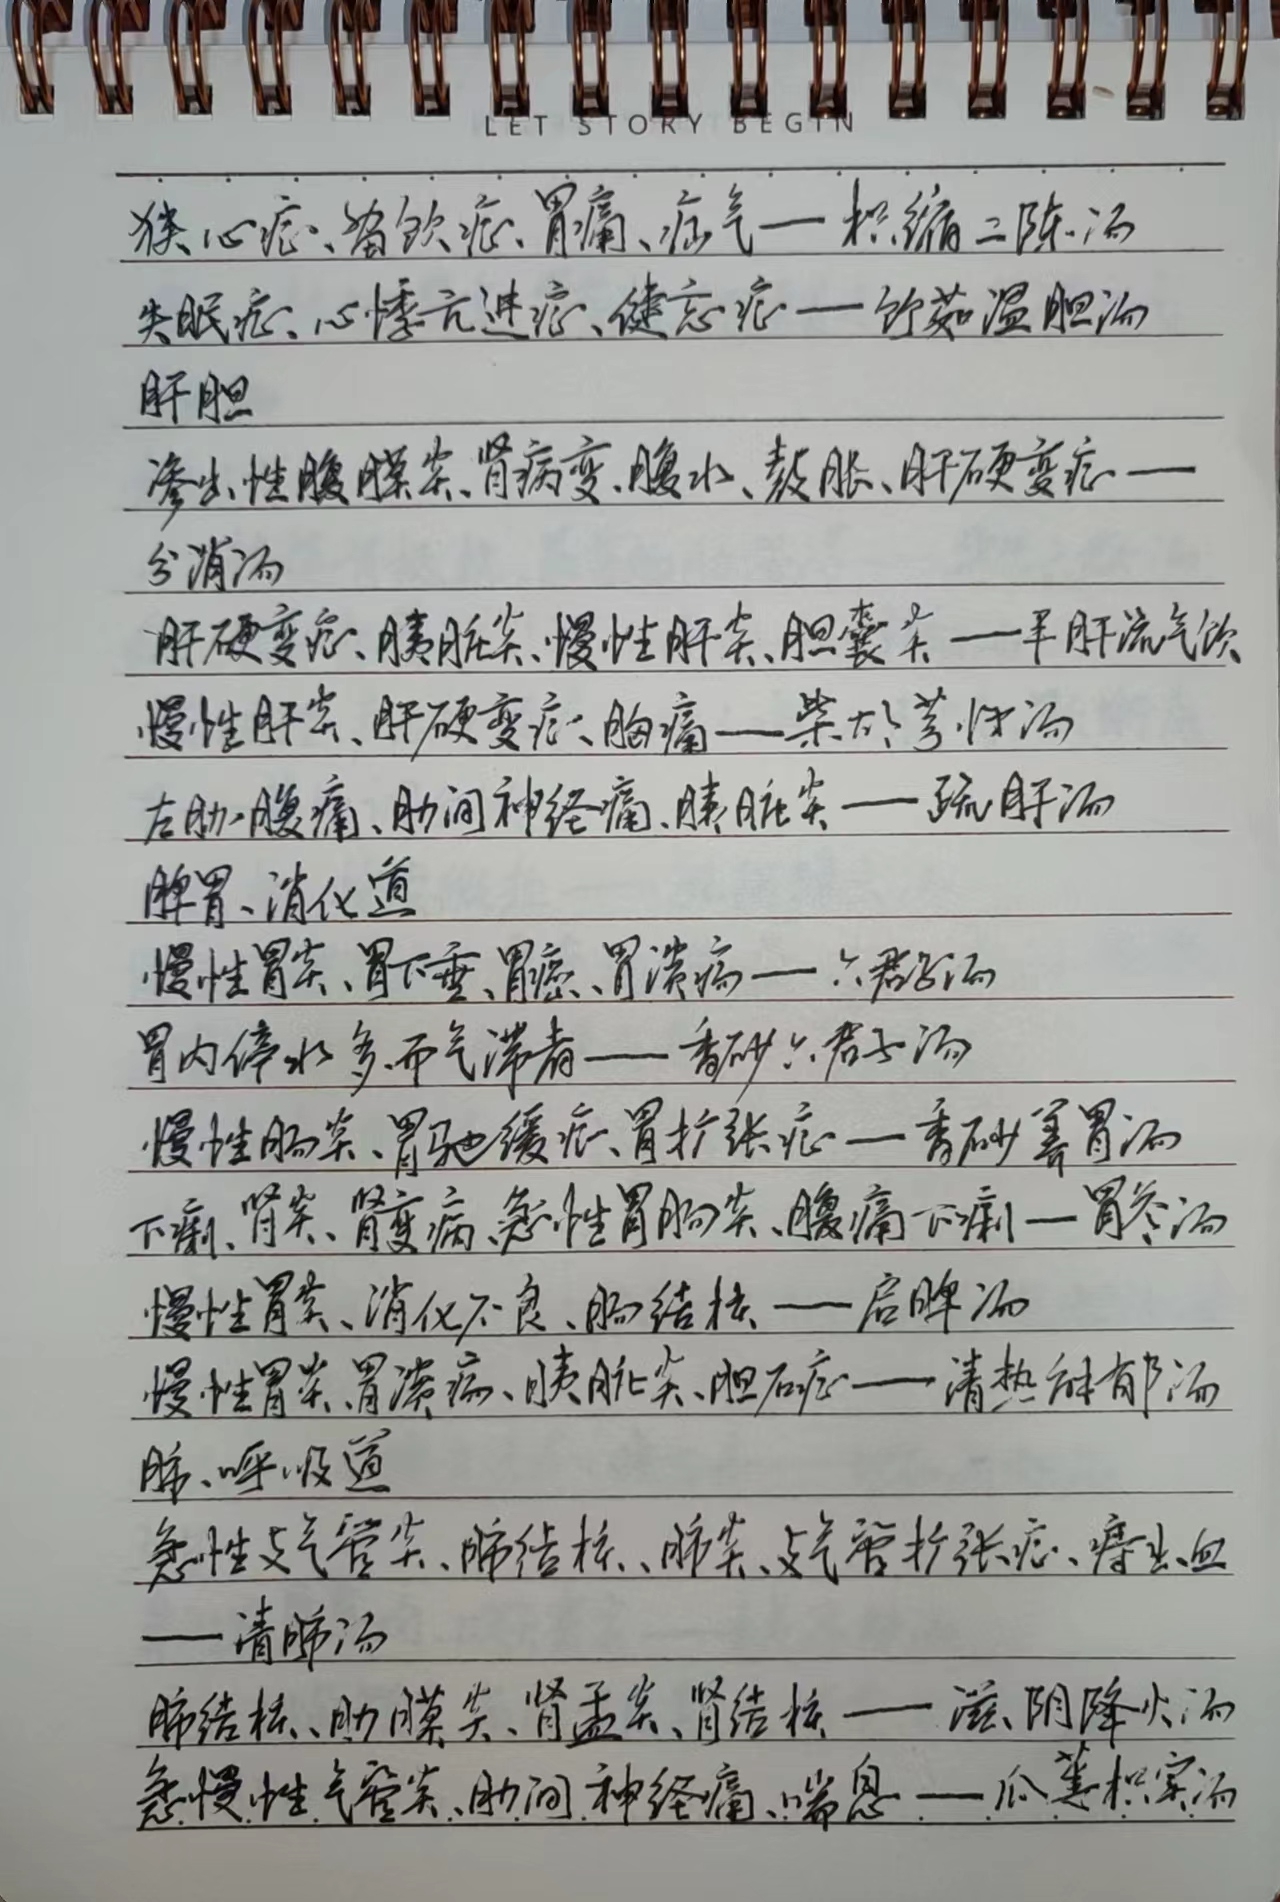 LET STORY BEGIN
心症、留饮症、胃痛、疝气——枳缩二陈汤
失眠症、心悸亢进症、健忘症——竹茹温胆汤
肝胆
渗出性腹膜炎、肾病变、腹水、鼓胀、肝硬变症——
分消汤
肝硬变症、胰脏炎、慢性肝炎、胆囊炎——平肝流气饮
慢性肝炎、肝硬变症、胸痛——柴胡芎归汤
左肋腹痛、肋间神经痛、胰脏炎——疏肝汤
脾胃、消化道
慢性胃炎、胃下垂、胃癌、胃溃疡——六君子汤
胃内停水多而气滞者——香砂六君子汤
慢性肠炎、胃驰缓症、胃扩张症——香砂养胃汤
下痢、肾炎、肾变病、急性胃肠炎、腹痛下痢——胃苓汤
慢性胃炎、消化不良、肠结核——启脾汤
慢性胃炎、胃溃疡、胰脏炎、胆石症——清热解郁汤
肺、呼吸道
急性支气管炎、肺结核、肺炎、支气管扩张症、痔出血
——清肺汤
肺结核、肋膜炎、肾盂炎、肾结核——滋阴降火汤
急慢性气管炎、肋间神经痛、喘息——瓜蒌枳实汤